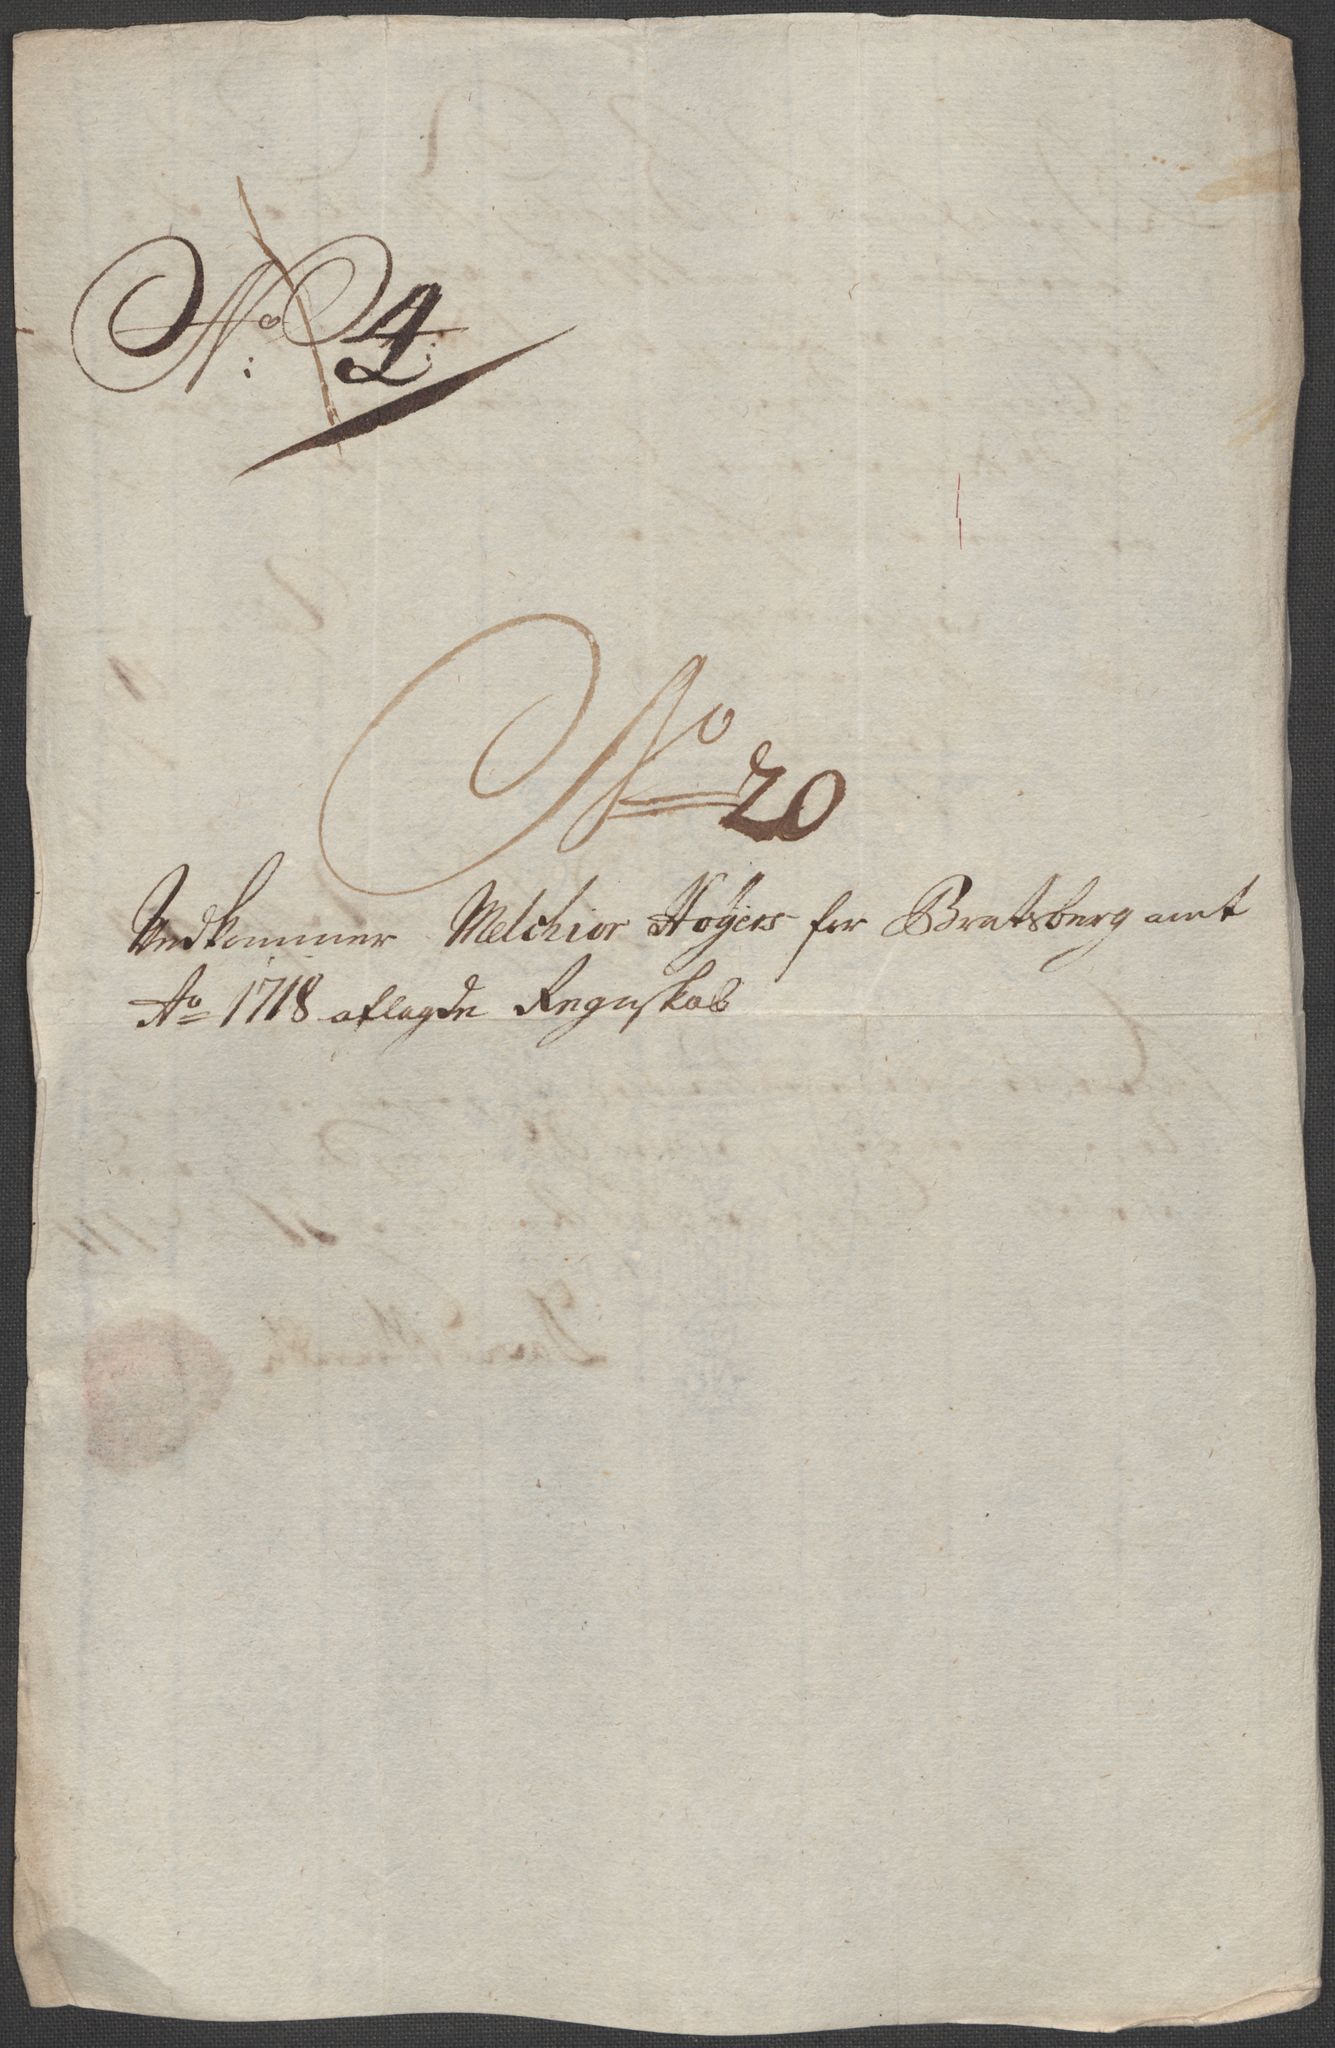 No: 4:
No 20
Vedkommer Melchior Høyers for Bratsberg amt
Ao 1718 aflagde Regnskab